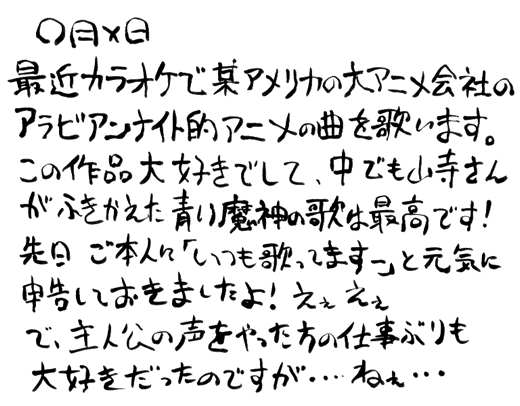 〇月×日
最近カラオケで某アメリカの大アニメ会社の
アラビアンナイト的アニメの曲を歌います。
この作品大好きでして、中でも山寺さん
がふきかえた青い魔神の歌は最高です!
先日ご本人に「いつも歌ってますー」と元気に
申告しておきましたよ!えぇえぇ
で、主人公の声をやった方の仕事ぶりも
大好きだったのですが‥‥ねぇ‥‥